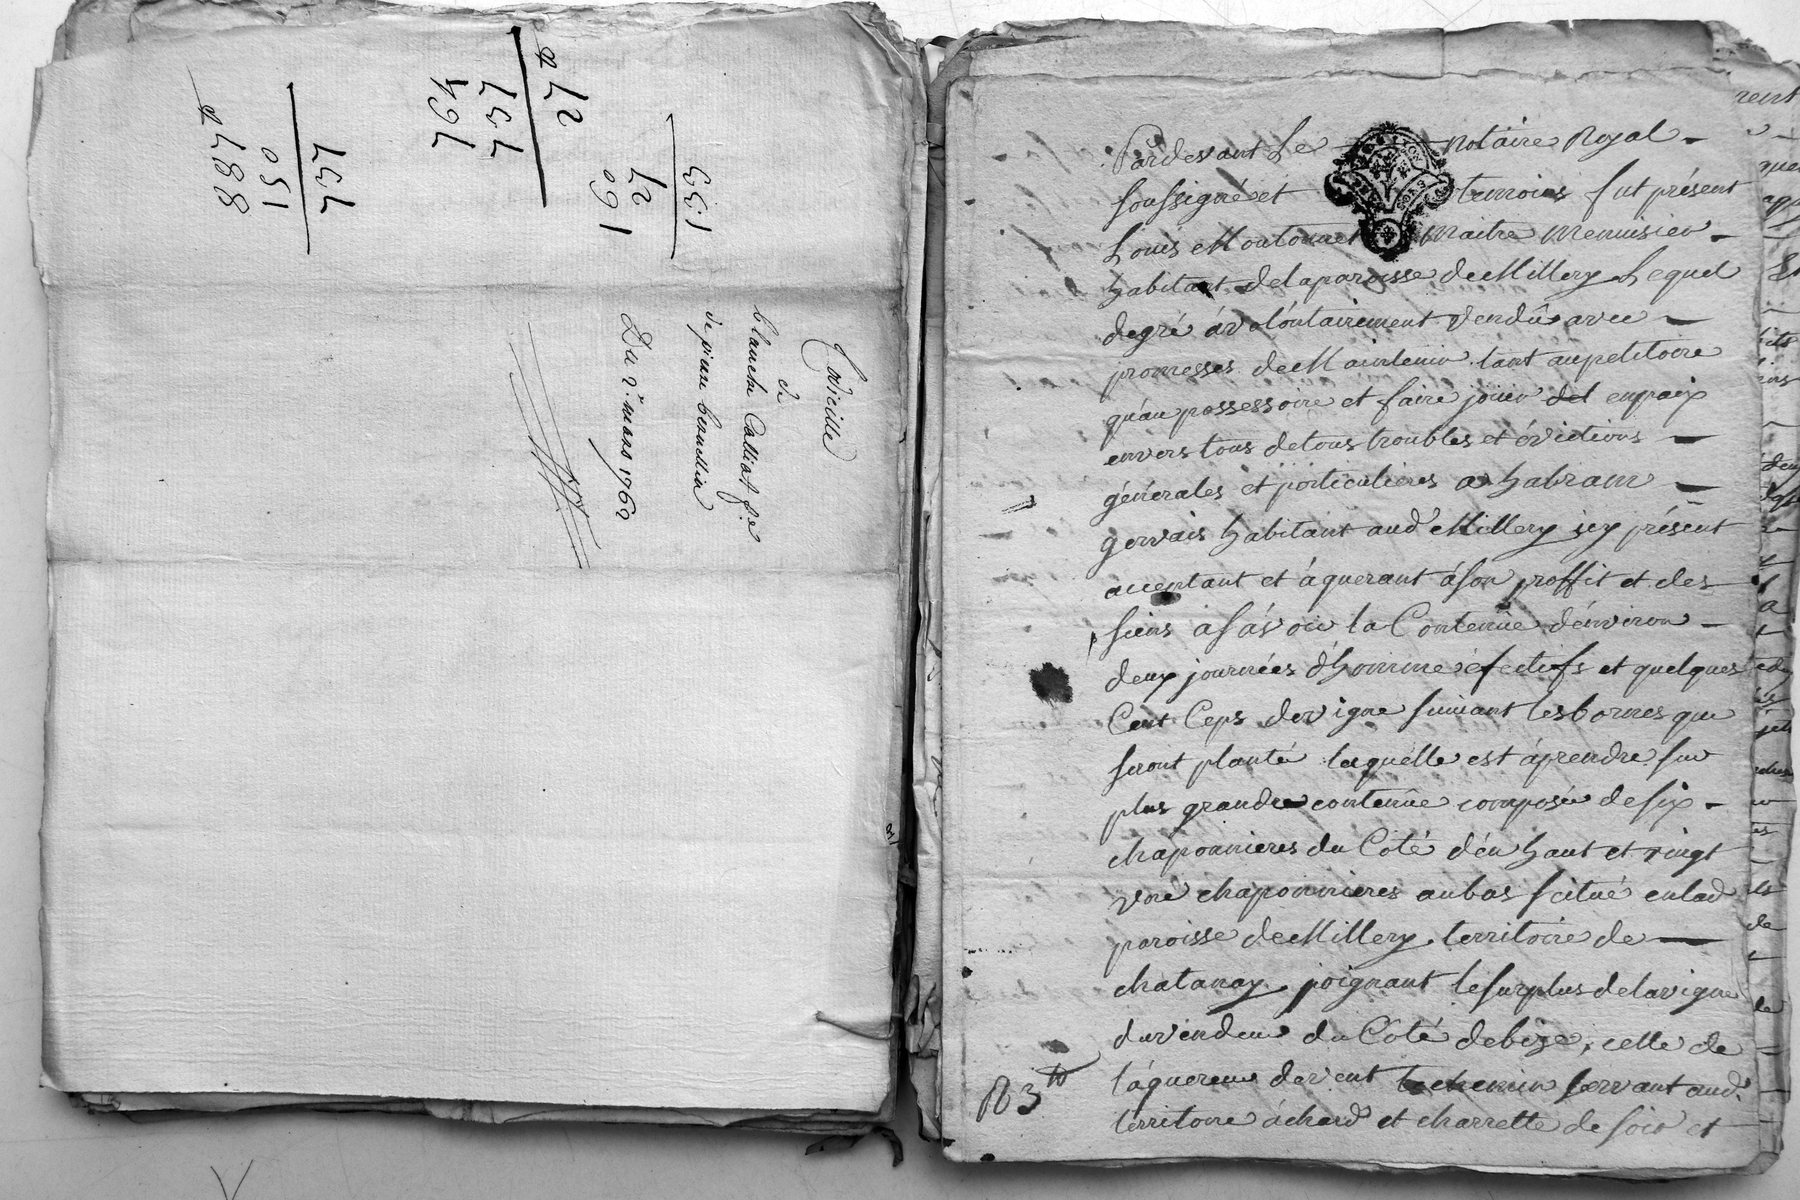 157
150
887
27
757
764
133
27
160
et
blanche Calliat fe
de pierre
Du 2e mars 1762
Pardevant Le Notaire Royal
soussigné et temoins fut présent
Louis Moutonnet Maitre Menuisier
habitant de la paroisse de Millery Lequel
de gré à volontairement vendû avec
promesses de Maintenir tant au petitoire
qu'au possessoire et faire jouir en paix
envers tous de tous troubles et évictions
génerales et particulieres a habram
gervais habitant aud Millery icy présent
acceptant et áquerant á son proffit et des
siens asávoir la Contenüe d'énviron
deux journées d'homme éfectifs et quelques
Cent Ceps de vigne suivant les bornes que
seront planté laquélle est áprendre sur
plus grande contenüe composée de six
chaponnieres du Coté d'én haut et vingt
une chaponnieres au bas scitué en lad
paroisse de Millery territoire de
chatanay joignant le surplus de la vigne
du vendeur du Côté de bize, celle de
l'áquereur de vent le chemin servant aud
territoire á chard et charrette de soir et
R 3